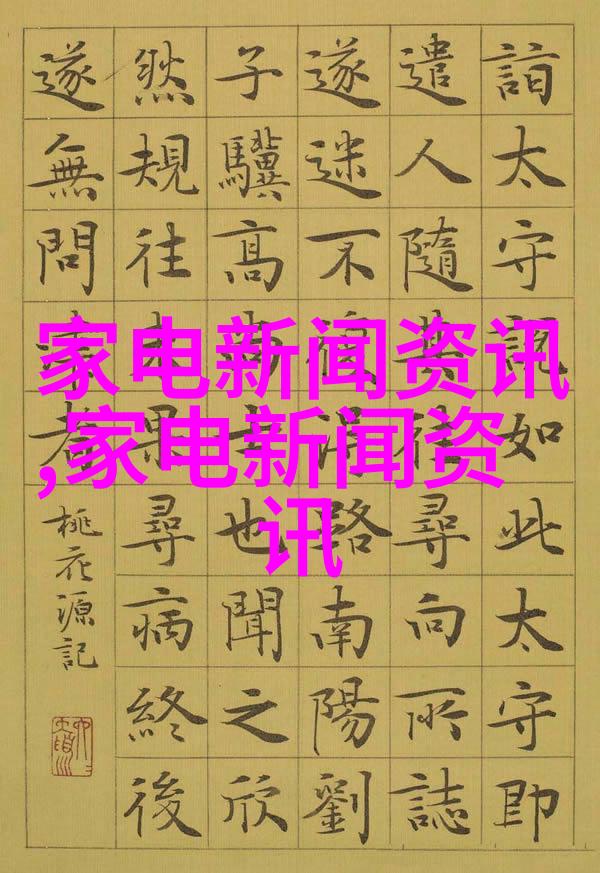 家电新闻资讯
,家电新闻资
讯
詣太守說如此太守即
遣人隨其往尋向所誌
遂迷不復得路南陽劉
子驥高尚士也聞之欣
然規往未果尋病終後
遂無問津者
桃花源記